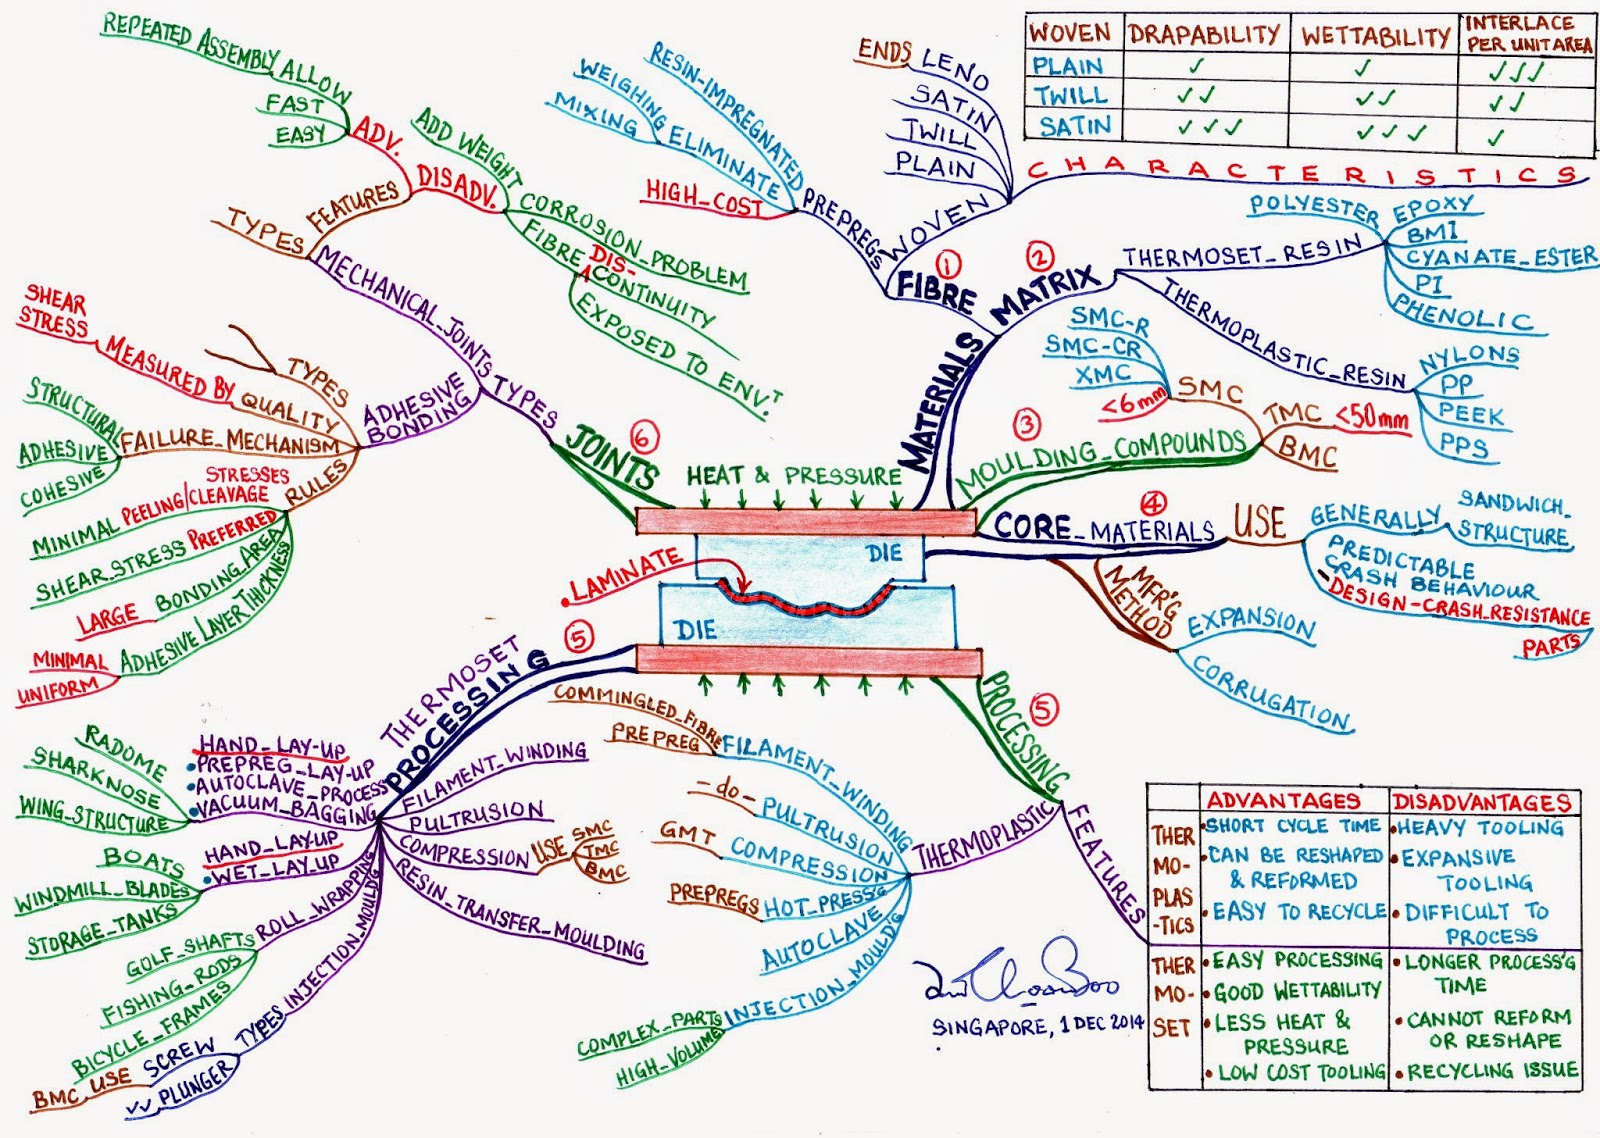 WOVEN DRAPABILITY WETTABILITY INTERLACE PER UNIT AREA
PLAIN ✓ ✓ ✓✓✓
TWILL ✓✓ ✓✓ ✓✓
SATIN ✓✓✓ ✓✓✓ ✓
CHARACTERISTICS
MATERIALS
① FIBRE
WOVEN
ENDS LENO
SATIN
TWILL
PLAIN
PREPREGS
RESIN-IMPREGNATED
ELIMINATE
WEIGHING
MIXING
HIGH_COST
② MATRIX
THERMOSET_RESIN
POLYESTER
EPOXY
BMI
CYANATE_ESTER
PI
PHENOLIC
THERMOPLASTIC_RESIN
NYLONS
PP
PEEK
PPS
③
MOULDING_COMPOUNDS
SMC
SMC-R
SMC-CR
XMC
<6mm
TMC <50mm
BMC
④
CORE_MATERIALS
USE
GENERALLY
SANDWICH_
STRUCTURE
PREDICTABLE
CRASH BEHAVIOUR
-DESIGN-CRASH_RESISTANCE
PARTS
MFR'G
METHOD
EXPANSION
CORRUGATION
⑥
JOINTS
TYPES
MECHANICAL_JOINTS
TYPES
FEATURES
ADV.
REPEATED ASSEMBLY ALLOW
FAST
EASY
DISADV.
ADD WEIGHT
CORROSION_PROBLEM
FIBRE DIS-
CONTINUITY
EXPOSED TO ENV.T
ADHESIVE
BONDING
TYPES
QUALITY
MEASURED BY
SHEAR
STRESS
FAILURE_MECHANISM
STRUCTURAL
ADHESIVE
COHESIVE
RULES
MINIMAL PEELING/CLEAVAGE STRESSES
SHEAR_STRESS PREFERRED
LARGE BONDING_AREA
ADHESIVE LAYER THICKNESS
MINIMAL
UNIFORM
HEAT & PRESSURE
DIE
LAMINATE
DIE
⑤
THERMOSET
PROCESSING
HAND_LAY-UP
PREPREG_LAY-UP
AUTOCLAVE_PROCESS
VACUUM_BAGGING
RADOME
SHARKNOSE
WING_STRUCTURE
HAND_LAY-UP
WET_LAY_UP
BOATS
WINDMILL_BLADES
STORAGE_TANKS
ROLL_WRAPPING
GOLF_SHAFTS
FISHING_RODS
BICYCLE_FRAMES
INJECTION_MOULD'G
TYPES
SCREW
✓✓ PLUNGER
BMC USE
FILAMENT_WINDING
PULTRUSION
COMPRESSION USE
SMC
TMC
BMC
RESIN_TRANSFER_MOULDING
⑤
PROCESSING
THERMOPLASTIC
FILAMENT_WINDING
COMMINGLED_FIBRE
PREPREG
-do- PULTRUSION
GMT COMPRESSION
PREPREGS HOT_PRESS'G
AUTOCLAVE
INJECTION_MOULD'G
COMPLEX_PARTS
HIGH_VOLUME
FEATURES
ADVANTAGES DISADVANTAGES
THER
MO-
PLAS
-TICS
•SHORT CYCLE TIME
•CAN BE RESHAPED
& REFORMED
•EASY TO RECYCLE
•HEAVY TOOLING
•EXPANSIVE
TOOLING
•DIFFICULT TO
PROCESS
THER
MO-
SET
•EASY PROCESSING
•GOOD WETTABILITY
•LESS HEAT &
PRESSURE
•LOW COST TOOLING
•LONGER PROCESS'G
TIME
•CANNOT REFORM
OR RESHAPE
•RECYCLING ISSUE
SINGAPORE, 1 DEC 2014